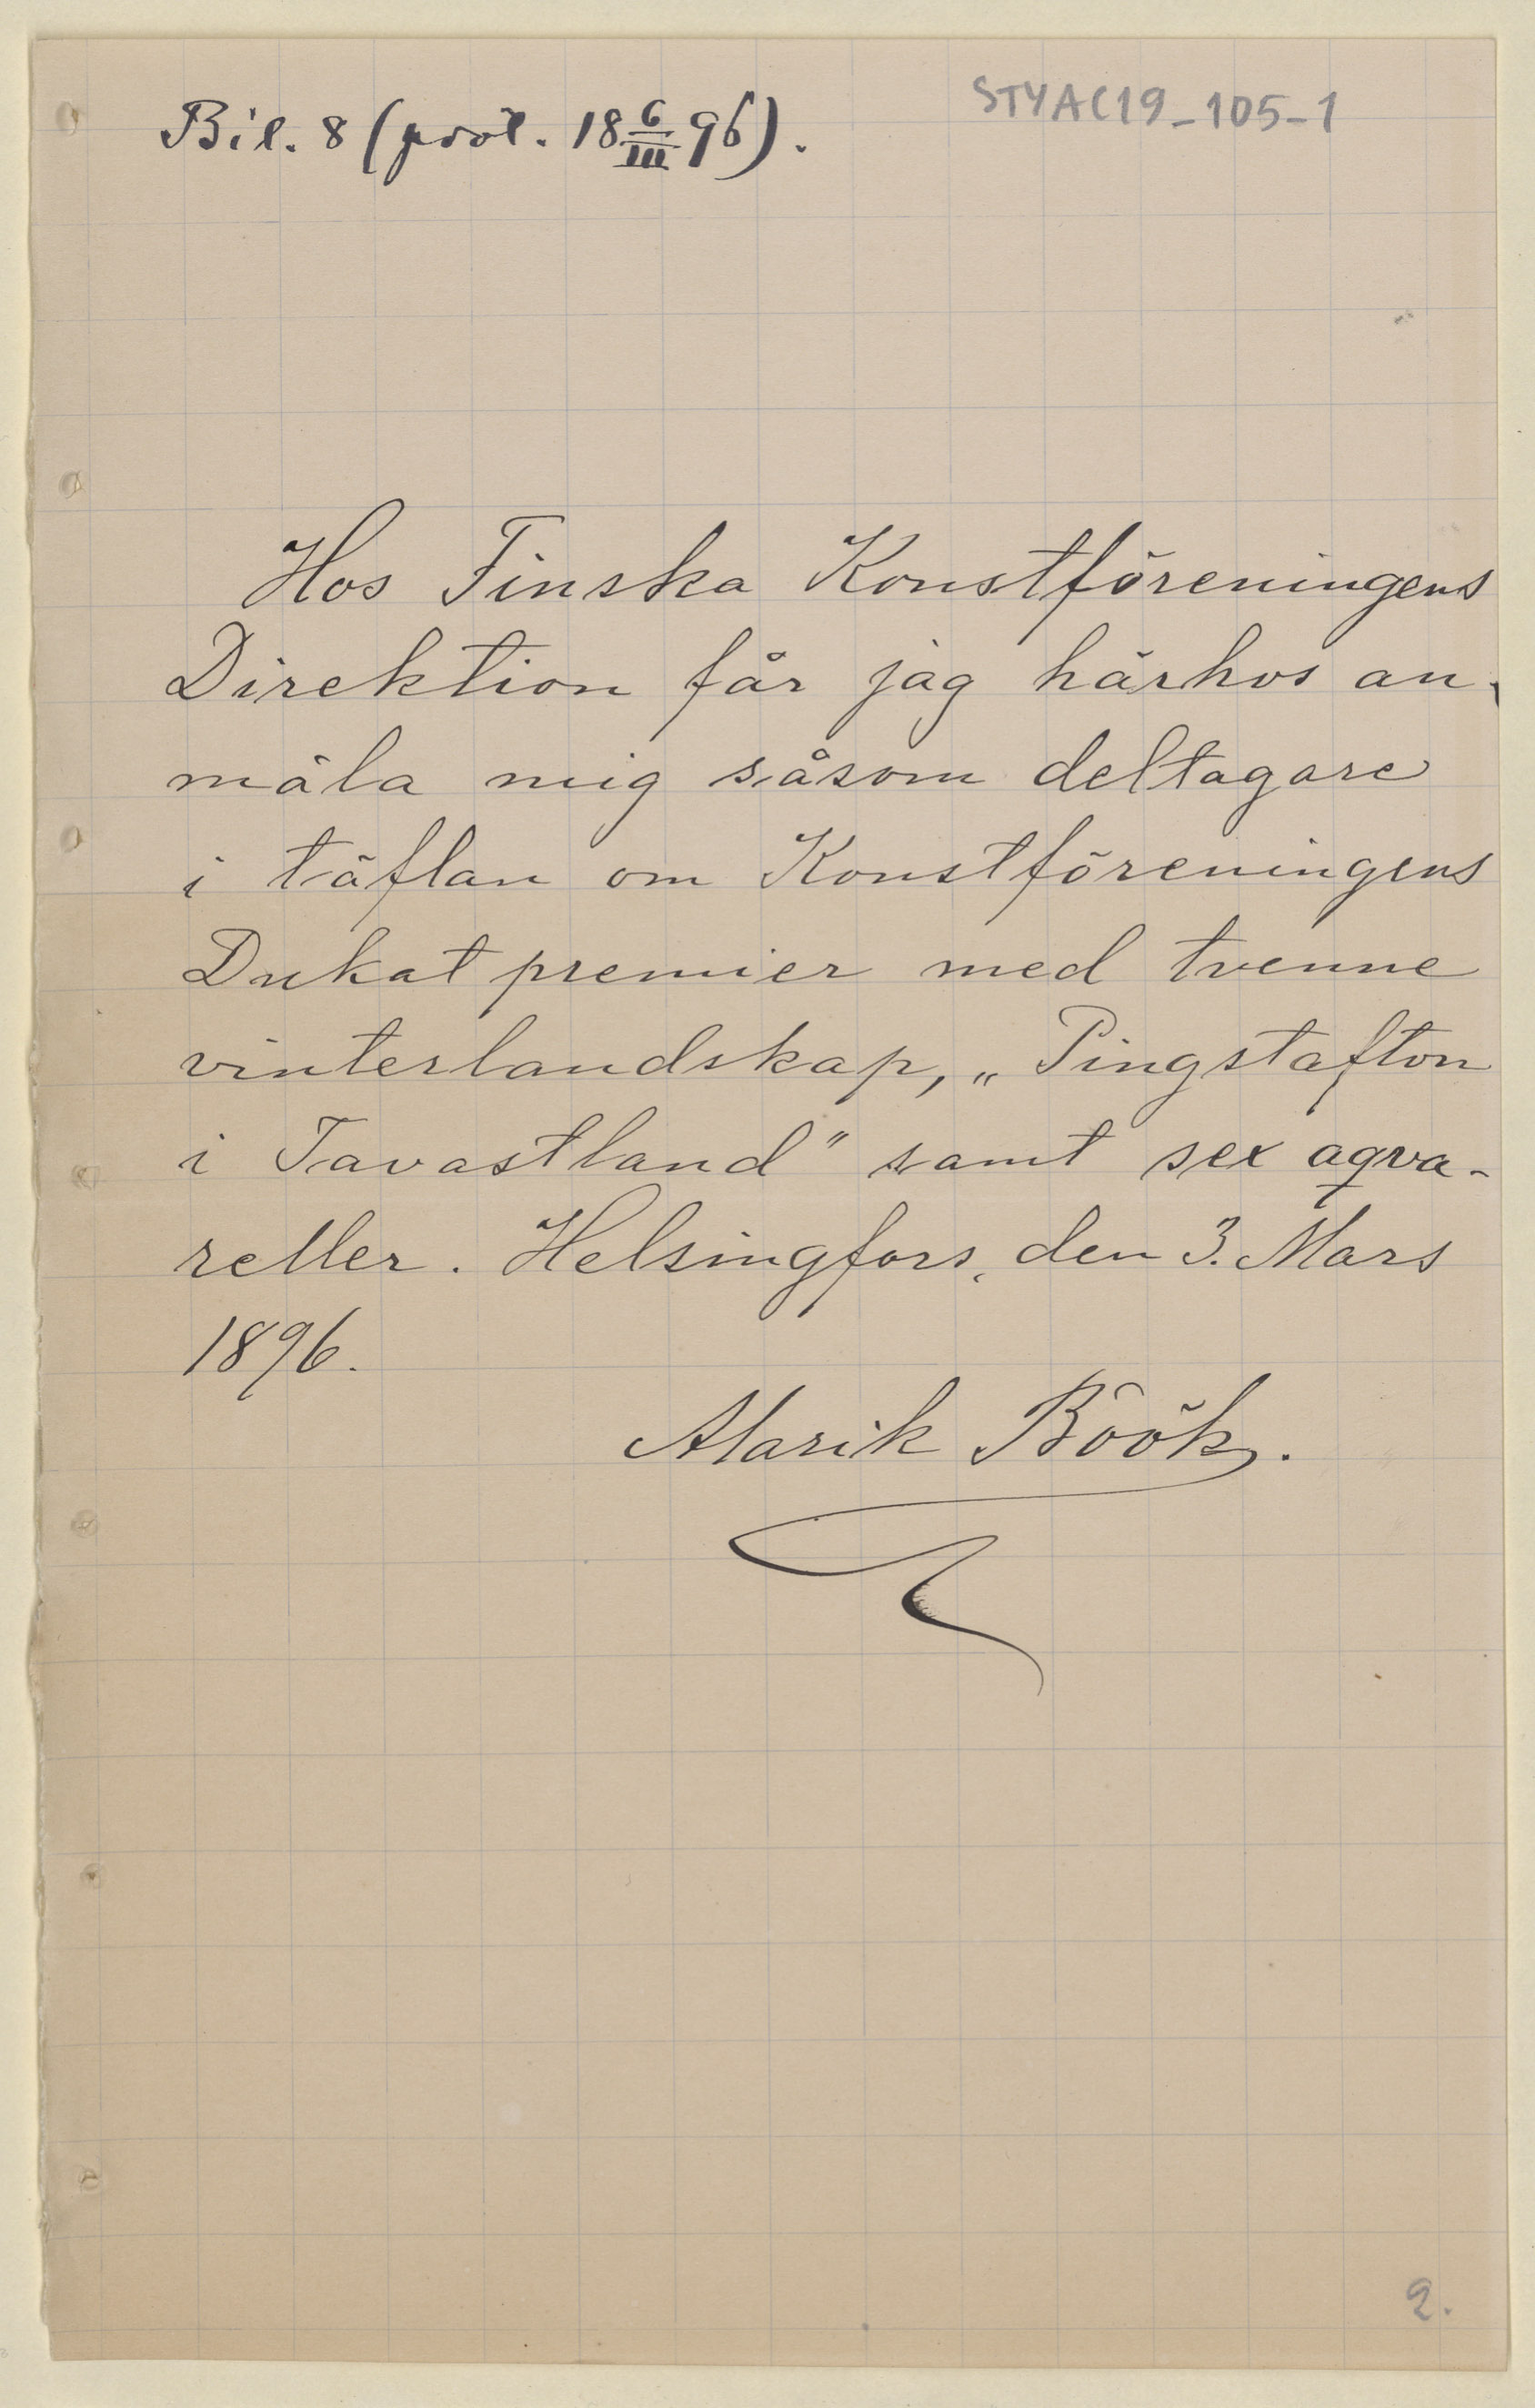 Bil. 8 (prot. 18 6/III 96).
STYAC19_105-1
Hos Finska Konstföreningens
Direktion får jag härhos an-
mäla mig såsom deltagare
i täflan om Konstföreningens
Dukat premier med tvenne
vinterlandskap, „Pingstafton
i Tavastland" samt sex aqva-
reller. Helsingfors, den 3. Mars
1896.
Alarik Böök.
2.